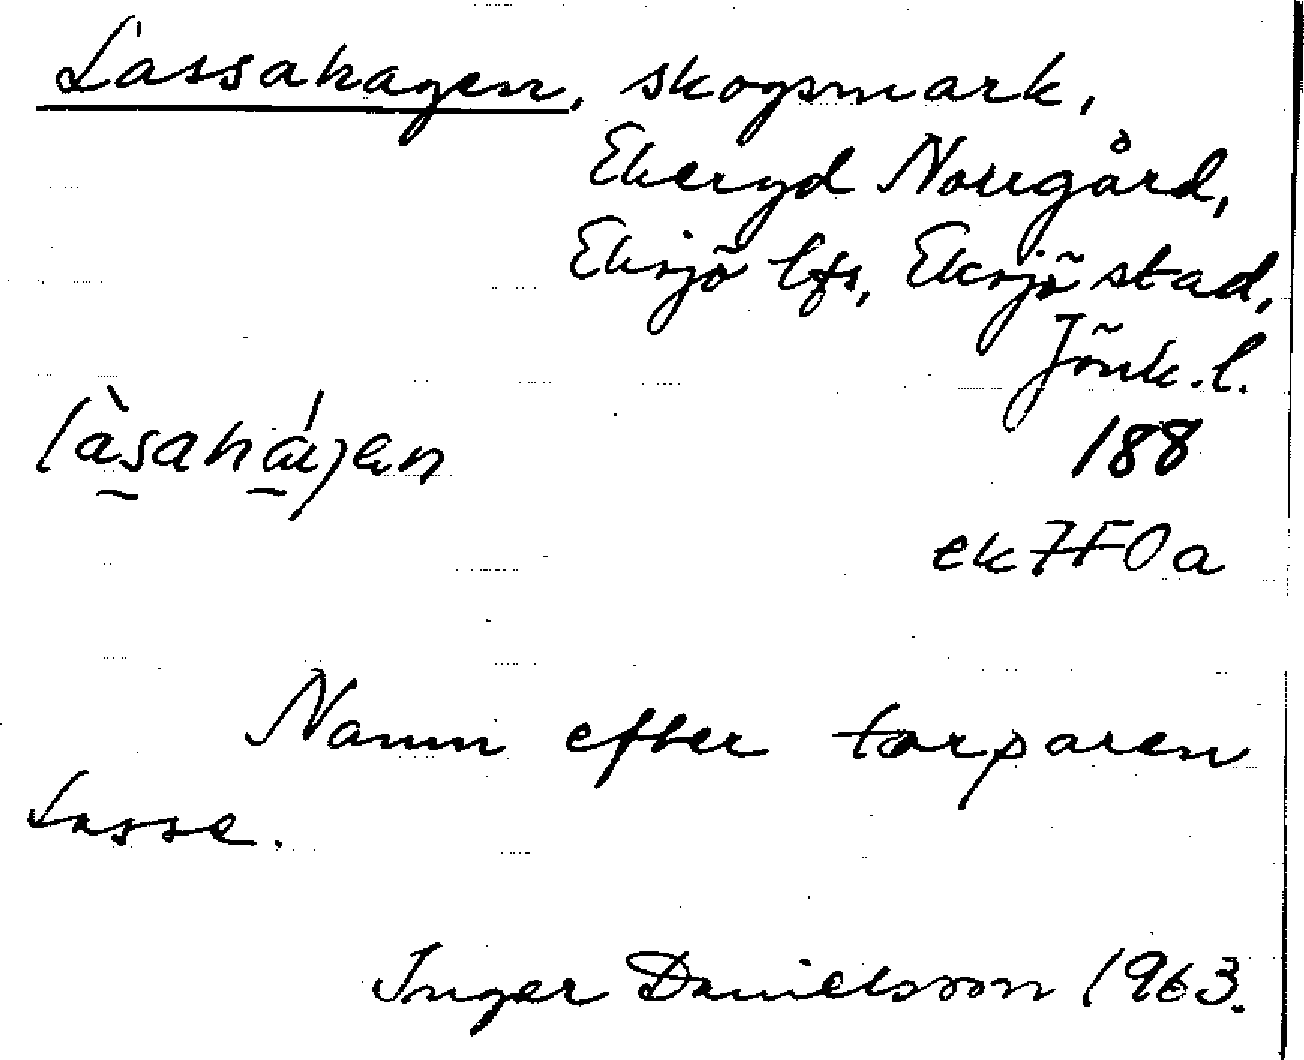 Lassahagen, skogsmark,
Ekeryd Norrgård,
Eksjö lfs, Eksjö stad,
Jönk. l.
188
làsahájen
ek 7F0a
Namn efter torparen
Lasse.
Inger Danielsson 1963.